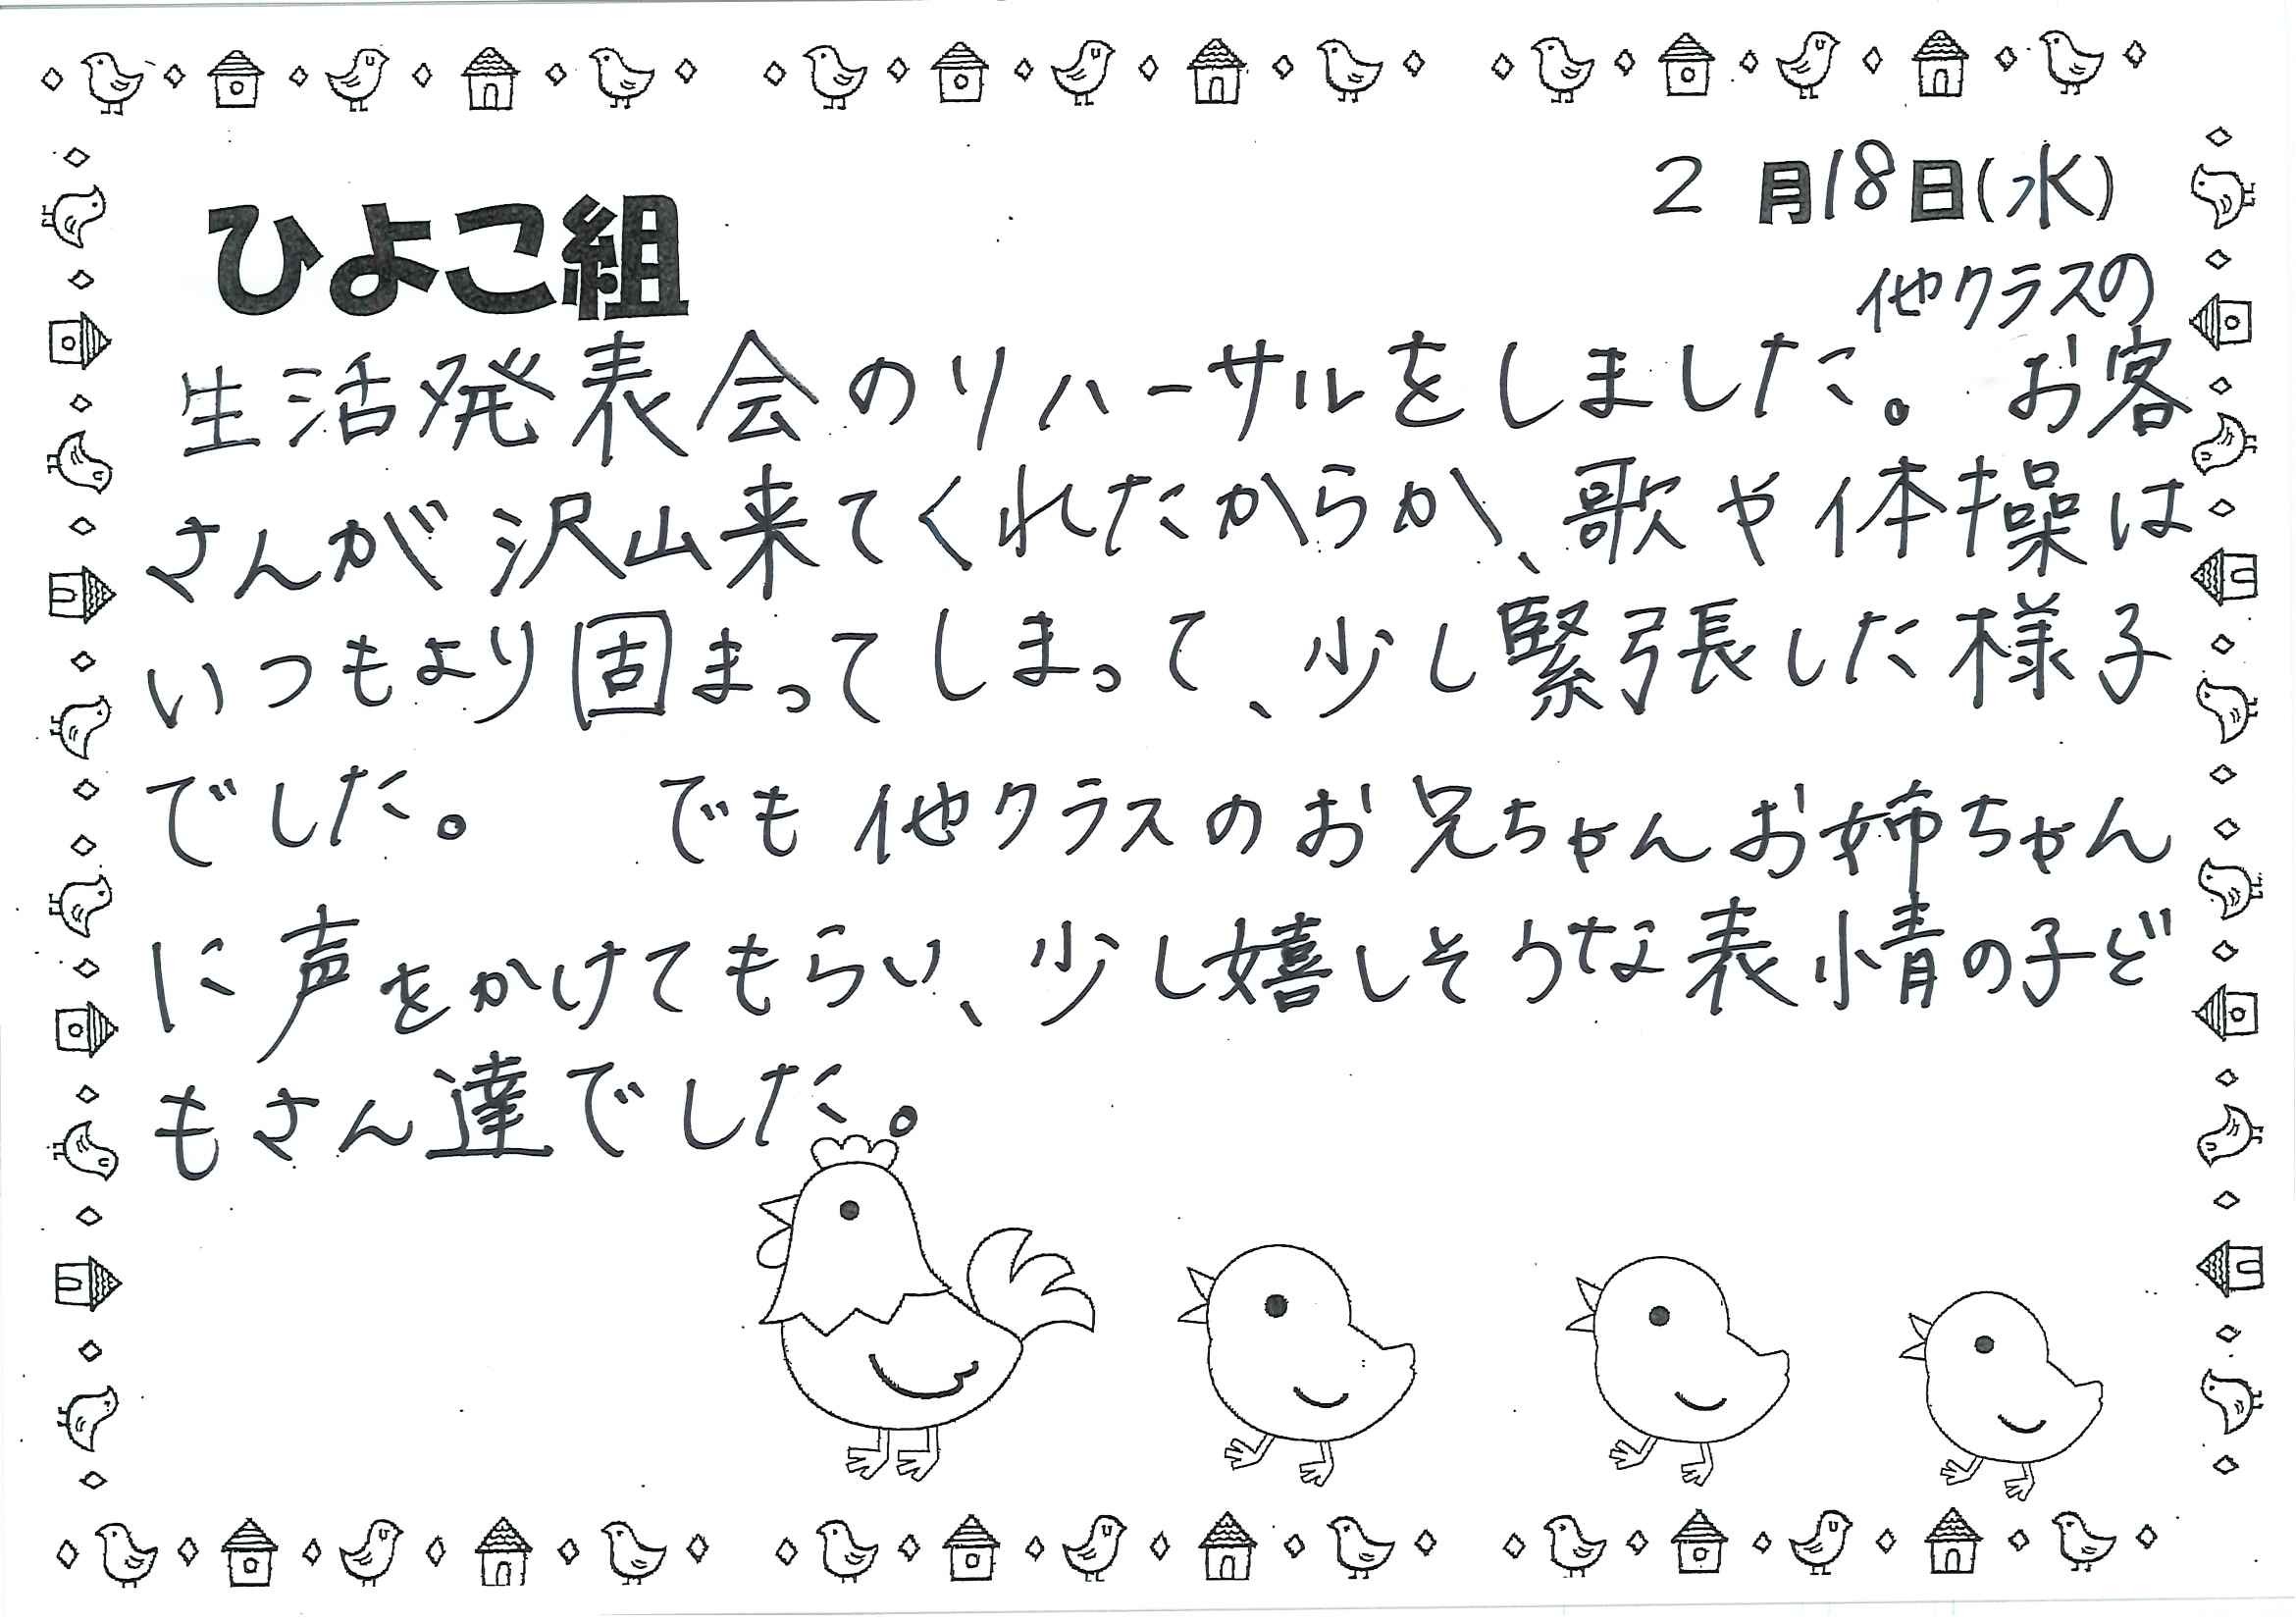 2月18日(水)
ひよこ組
他クラスの
生活発表会のリハーサルをしました。お客
さんが沢山来てくれたからか、歌や体操は
いつもより固まってしまって、少し緊張した様子
でした。 でも他クラスのお兄ちゃんお姉ちゃん
に声をかけてもらい、少し嬉しそうな表情の子ど
もさん達でした。